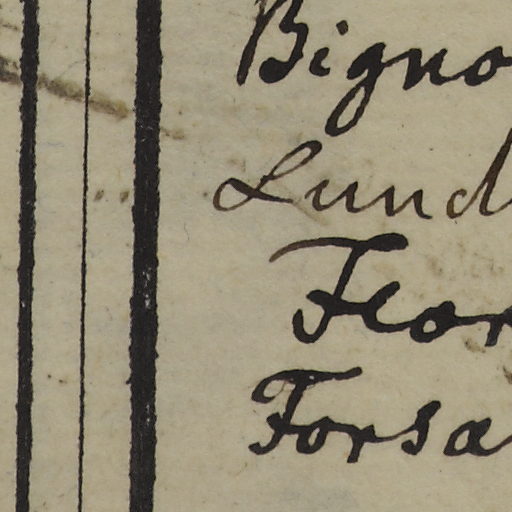 Bigno
Lund
Flor
Forsa